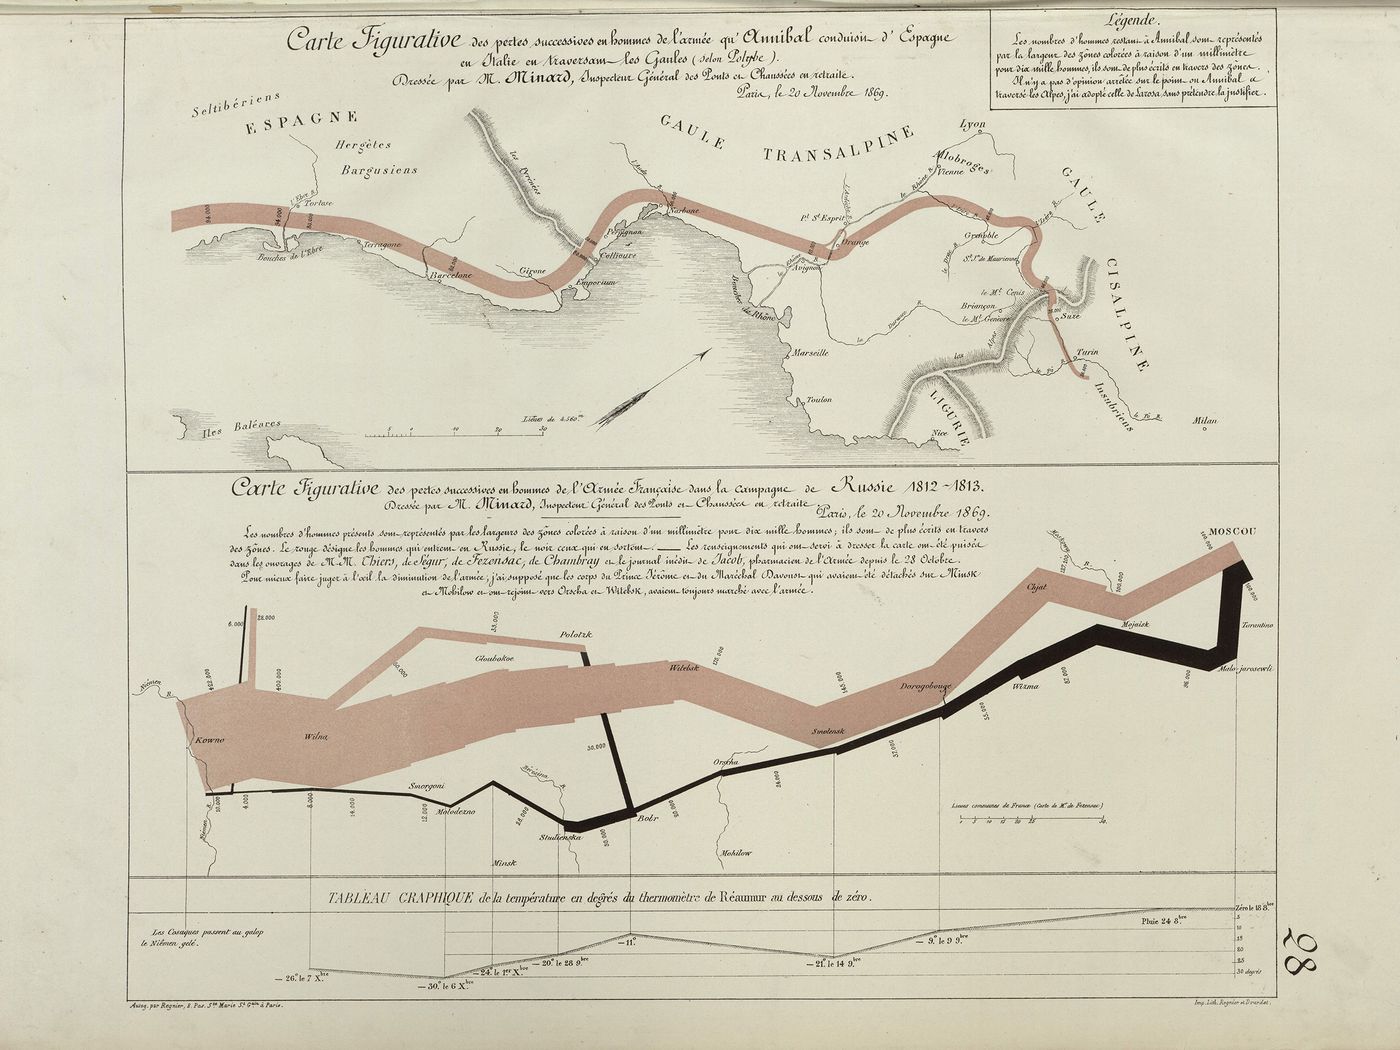 Carte Figurative des pertes successives en hommes de l'armée qu'Annibal conduisit d'Espagne
en Italie en traversant les Gaules (selon Polybe).
Dressée par M. Minard, Inspecteur Général des Ponts et Chaussées en retraite.
Paris, le 20 Novembre 1869.
Légende.
Les nombres d'hommes restant à Annibal sont représentés
par la largeur des zônes colorées à raison d'un millimètre
pour dix mille hommes, ils sont de plus écrits en travers des zônes.
Il n'y a pas d'opinion arrêtée sur le point où Annibal a
traversé les Alpes, j'ai adopté celle de Larosa, sans prétendre la justifier.
Seltibériens
ESPAGNE
Hergètes
Bargusiens
GAULE TRANSALPINE
GAULE CISALPINE
les Pyrénées
l'Aude
Lyon
Allobroges
Vienne
le Rhône R.
l'Isère R.
l'Ebre R.
Tortose
Bouches de l'Ebre
Tarragone
Barcelone
Girone
Emporium
Collioure
Perpignan
Narbonne
Pt. St Esprit
Orange
Avignon
le Rhône
Bouches du Rhône
Grenoble
St. Jn. de Maurienne
le Mt. Cenis
Briançon
le Mt. Genèvre
Suze
Turin
le Pô R.
Insubriens
le Pô R.
Milan
les Alpes
LIGURIE
Nice
Marseille
Toulon
Iles Baléares
Lieues de 4.560m
5 0 10 20 30
Carte Figurative des pertes successives en hommes de l'Armée Française dans la campagne de Russie 1812-1813.
Dressée par M. Minard, Inspecteur Général des Ponts et Chaussées en retraite
Paris, le 20 Novembre 1869.
Les nombres d'hommes présents sont représentés par les largeurs des zônes colorées à raison d'un millimètre pour dix mille hommes; ils sont de plus écrits en travers
des zônes. Le rouge désigne les hommes qui entrent en Russie, le noir ceux qui en sortent. — Les renseignements qui ont servi à dresser la carte ont été puisés
dans les ouvrages de M.M. Thiers, de Ségur, de Fezensac, de Chambray et le journal inédit de Jacob, pharmacien de l'Armée depuis le 28 Octobre.
Pour mieux faire juger à l'œil la diminution de l'armée, j'ai supposé que les corps du Prince Jérôme et du Maréchal Davoust qui avaient été détachés sur Minsk
et Mohilow et ont rejoint vers Orscha et Witebsk, avaient toujours marché avec l'armée.
MOSCOU
100.000
100.000
127.100
100.000
Chjat
Mojaisk
Tarantino
Malo-jarosewli
Wizma
Dorogobouge
Smolensk
145.000
175.000
Witebsk
Polotzk
33.000
60.000
Gloubokoe
6.000
22.000
422.000
400.000
Niémen R.
Kowno
Wilna
Smorgoni
Molodezno
Bérézina R.
Studienska
Bobr
Orscha
Mohilow
Minsk
30.000
Niémen R.
10.000
4.000
8.000
14.000
12.000
28.000
50.000
20.000
24.000
37.000
55.000
Lieues communes de France (Carte de Mr. de Fezensac)
1 5 10 15 20 25 50.
TABLEAU GRAPHIQUE de la température en degrés du thermomètre de Réaumur au dessous de zéro.
Les Cosaques passent au galop
le Niémen gelé.
Zéro le 18 8bre.
5
10
15
20
25
30 degrés
Pluie 24 8bre.
- 9° le 9 9bre.
- 21° le 14 9bre.
- 11°
- 20° le 28 9bre.
- 24° le 1er Xbre
- 30° le 6 Xbre.
- 26° le 7 Xbre
Autog. par Regnier, 8. Pas. Ste Marie St. Gain à Paris.
Imp. Lith. Regnier et Dourdet.
28